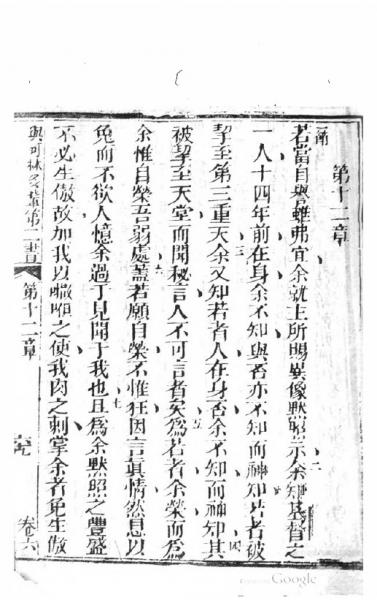 第十二章
一節若當自譽雖弗宜余就主所賜異像默照示余知基督之
一人十四年前在身余不知與否亦不知而神知若者被
挈至第三重天余又知若者人在身否余不知而神知其
被挈至天堂而聞秘言人不可言者矣為若者余榮而為
余惟自榮吾弱處蓋若願自榮不惟狂因言真情然息以
免而不欲人憶余過于見聞于我也且為余默照之豐盛
不必生傲故加我以嗾嗔之使我肉之刺掌余者免生傲
與可林多輩第二書 第十二章 卷六
Google